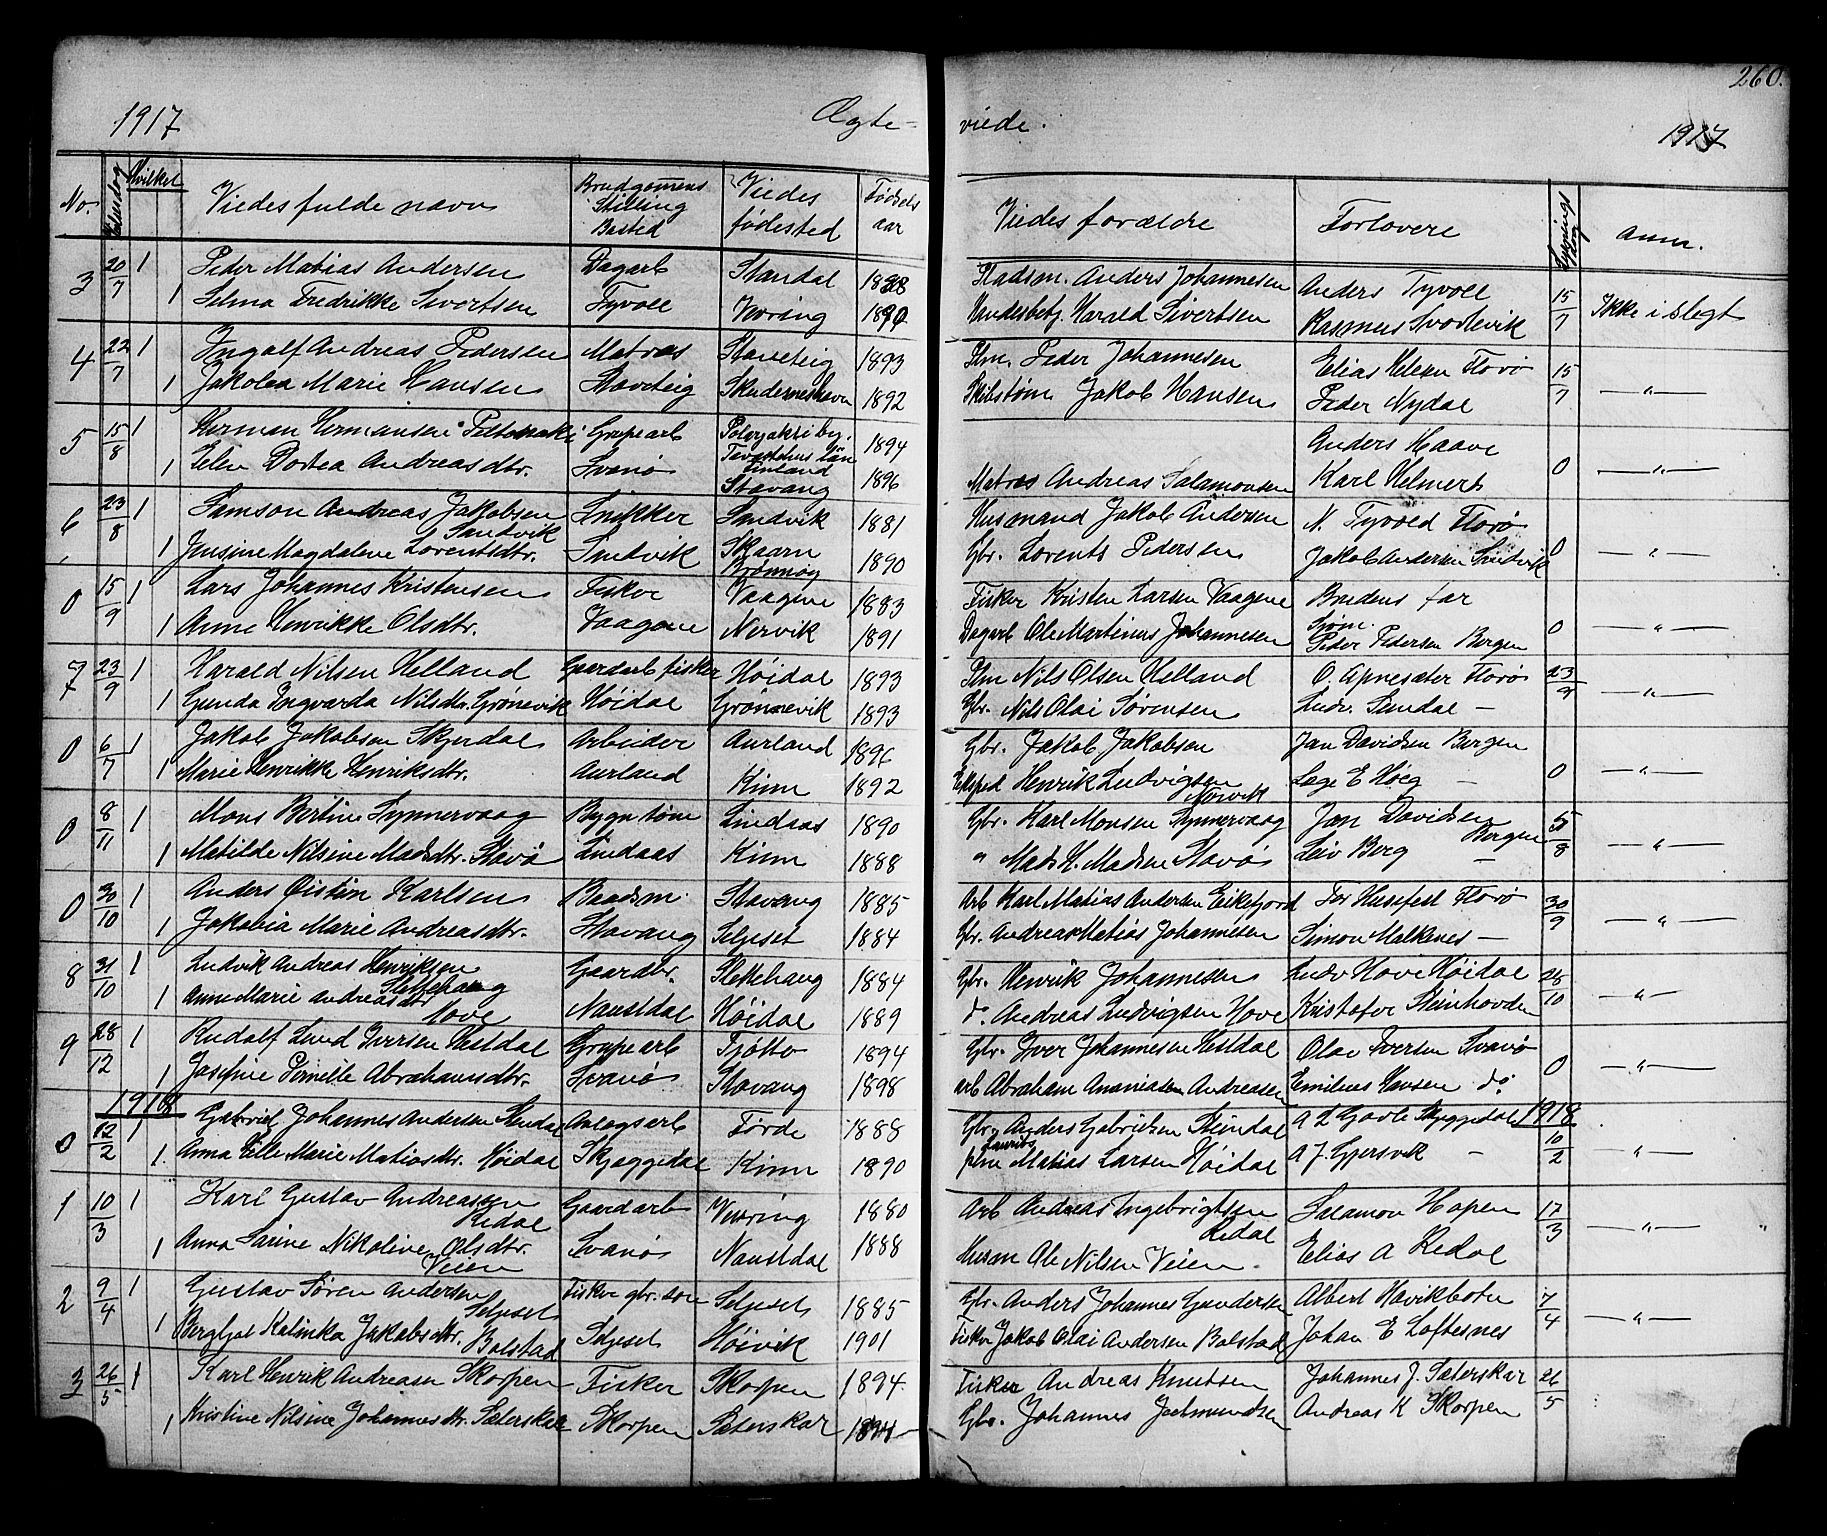 260.
1917 Ægte- viede. 1917
No. Hvilket Viedes fulde navn Brudgommens Stilling Bosted Viedes fødested Fødsels aar Viedes forældre Forlovere Lysnings dag Anm.
3 20/7 1 Peder Matias Andersen Dagarb Standal 1888 Stadsm. Anders Johannesen Anders Tyvoll 15/7 Ikke i slegt
1 Selma Fredrikke Sivertsen Tyvoll Vevring 1890 Underbetj. Harald Sivertsen Rasmus Svortevik
4 22/7 1 Ingolf Andreas Pedersen Matros Stavteig 1893 Plm. Peder Johannesen Elias Helsen Florø 15/7 — " —
1 Jakobea Marie Hansen Stavteig Skudeneshavn 1892 Skibstøm Jakob Hansen Peder Nydal
5 15/8 1 Herman Hermansen Grupearb 1894 Anders Haave 0 — " —
Tavastehus län Finland
1 Elen Dortea Andreasdtr. Svanø Stavang 1896 Matros Andreas Salamonsen Karl Helmers
6 23/8 1 Samson Andreas Jakobsen Sandvik Snikker Sandvik 1881 Husmand Jakob Andersen N. Tyvold Florø
1 Jensine Magdalene Lorentsdtr. Sandvik Skaarn Brønnøy 1890 Gbr. Lorents Pedersen Jakob Andersen Sandvik 0 — " —
0 15/9 1 Lars Johannes Kristensen Fisker Vaagene 1883 Fisker Kristen Larsen Vaagene Brudens far
1 Anne Henrikke Olsdtr. Vaagene Nervik 1891 Dagarb Ole Martinus Johannesen Sjøm. Peder Pedersen Bergen 0 — " —
7 23/9 1 Harald Nilsen Helland Gaardarb fisker Høidal 1893 Plm Nils Olsen Helland O. Apnesæter Florø 23/9 — " —
1 Gunda Ingvarda Nilsdtr. Grønevik Høidal Grønnevik 1893 Gbr. Nils Olai Sørensen Ludv. Sundal —
0 6/7 1 Jakob Jakobsen Skjerdal Arbeider Aurland 1896 Gbr. Jakob Jakobsen Jan Davidsen Bergen
1 Marie Henrikke Henriksdtr. Aurland Kinn 1892 Eksped Henrik Ludvigsen Norvik Lage E Høeg — 0 — " —
0 8/11 1 Mons Bertine Synnervaag Bygn tøm Lindaas 1890 Gbr. Karl Monsen Synnervaag Jan Davidsen Bergen 5/8 — " —
1 Matilde Nilsine Madsdtr. Stavø Lindaas Kinn 1888 " Mads H. Madsen Stavø Leiv Berg —
0 30/10 1 Anders Øistein Karlsen Baadsm. Stavang 1885 Arb Karl Matias Andersen Eikefjord Tor Husefest Florø 30/9 — " —
1 Jakobia Marie Andreasdtr. Stavang Seljeset 1884 Gbr. Andreas Matias Johannesen Simon Malkenes —
8 31/10 1 Ludvik Andreas Henriksen Slettehaug Gaardbr. Slettehaug 1884 Gbr. Henrik Johannesen Ludv Hove Høidal 28/10 — " —
1 Anne Marie Andreasdtr Hove Naustdal Høidal 1889 do. Andreas Ludvigsen Hove Kristofer Steinhovden
9 28/12 1 Rudolf Lund Iversen Vestdal Grupearb Tjøtto 1894 Gbr. Iver Johannesen Vestdal Olai Iversen Svanø 0 — " —
1 Josefine Pernille Abrahamsdtr. Svanø Stavang 1898 arb Abraham Ananiasen Andreasen Emilius Hansen do
1918 1918
0 12/2 1 Gabriel Johannes Andersen Steindal Anlegsarb Førde 1888 Gbr. Anders Gabrielsen Steindal A L Gavle Skjeggedal 10/2 — " —
1. Anna Elle Marie Matiasdtr. Høidal Skjeggedal Kinn 1890 plm Laurits Matias Larsen Høidal A J. Gjersvik —
1 10/3 1 Karl Gustav Andreassen Redal Gaardarb Vevring 1880 Arb Andreas Ingebrigtsen Redal Salamon Hopen 17/3 — " —
1 Anna Sarine Nikoline Olsdtr. Veien Svanø Naustdal 1888 Husm Ole Nilsen Veien Elias A Redal
2 9/4 1 Gustav Søren Andersen Seljeset Fisker gbr. søn Seljeset 1885 Gbr. Anders Johannes Gundersen Albert Havikbotn 7/4 — " —
1 Bergljot Kalinka Jakobsdtr. Bolstad Seljeset Høivik 1901 Fisker Jakob Olai Andersen Bolstad Johan E Loftesnes
3 26/5 1 Karl Henrik Andreasen Skorpen Fisker Skorpen 1894. Fisker Andreas Knutsen Johannes J. Sæterskar 26/5
1 Kristine Nilsine Johannesdtr. Sæterskar Skorpen Sæterskar 1894 Gbr. Johannes Jetmundsen Andreas K Skorpen